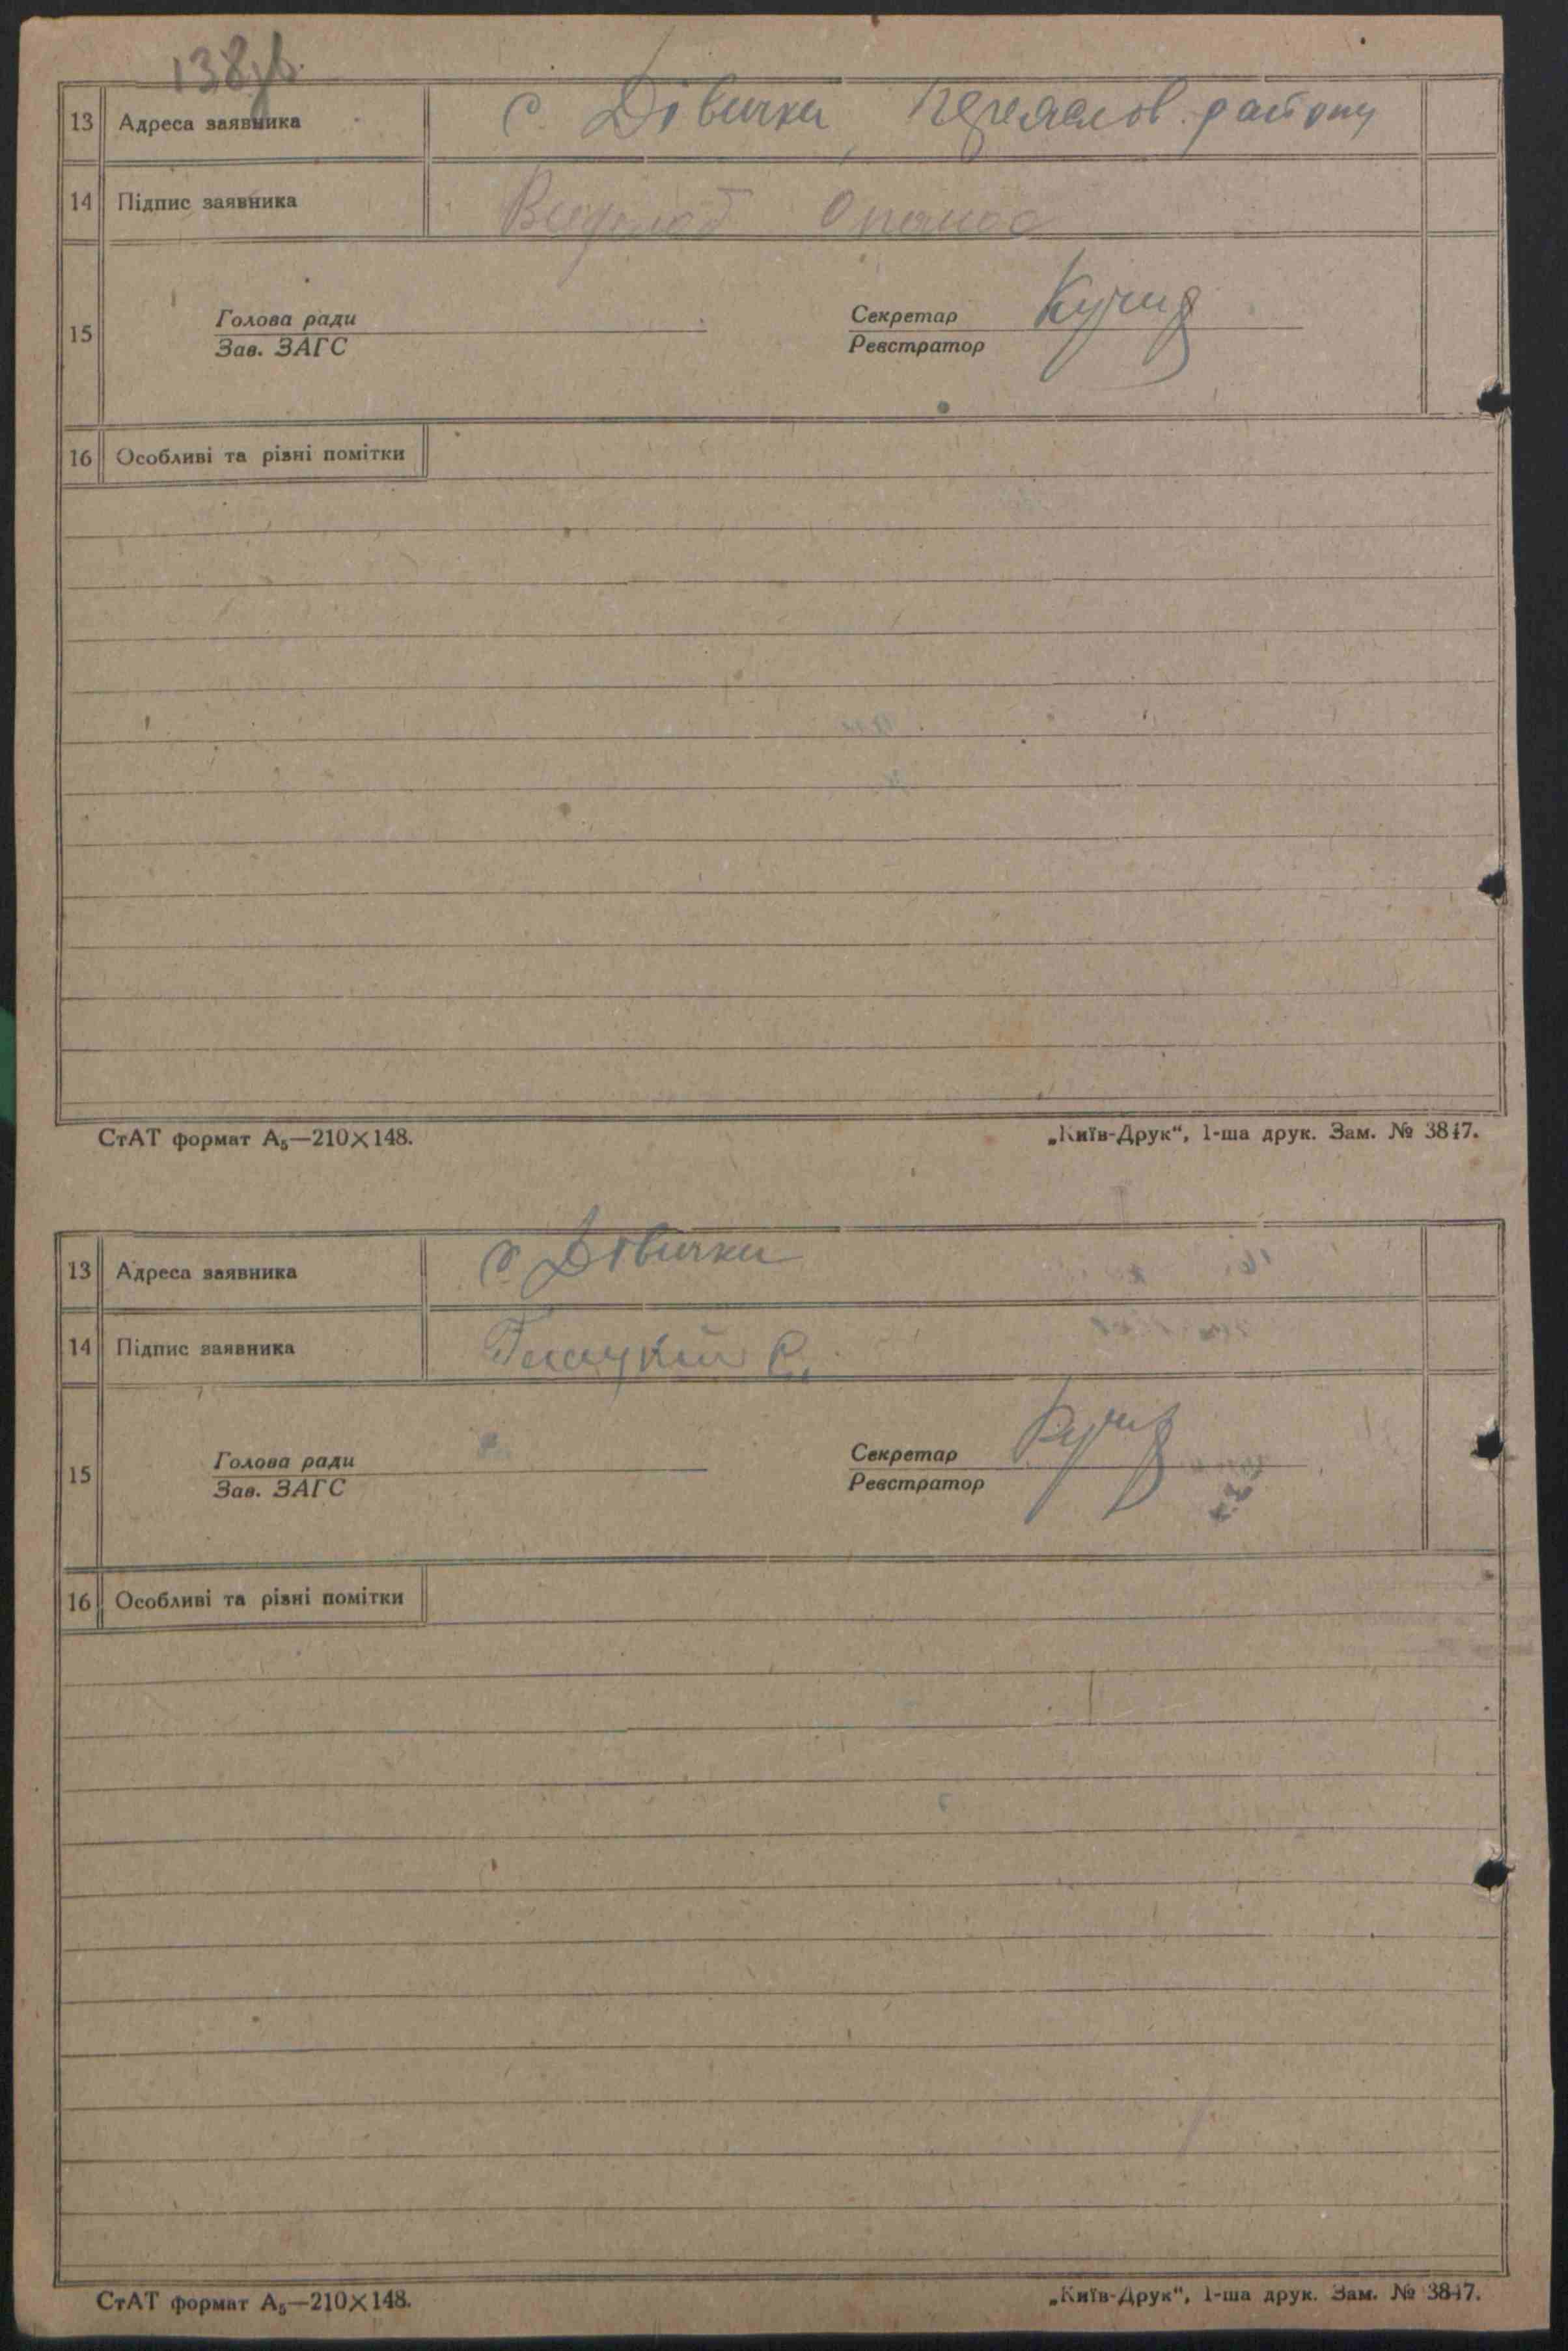 138зв.
13 Адреса заявника с. Дівички, Переяслов. району
14 Підпис заявника Опанас
15 Голова ради
Зав. ЗАГС
Секретар
Реєстратор
16 Особливі та різні помітки
СтАТ формат А₅—210×148. „Київ-Друк“, 1-ша друк. Зам. № 3847.
13 Адреса заявника с. Дівички
14 Підпис заявника
15 Голова ради
Зав. ЗАГС
Секретар
Реєстратор
16 Особливі та різні помітки
СтАТ формат А₅—210×148. „Київ-Друк“, 1-ша друк. Зам. № 3847.